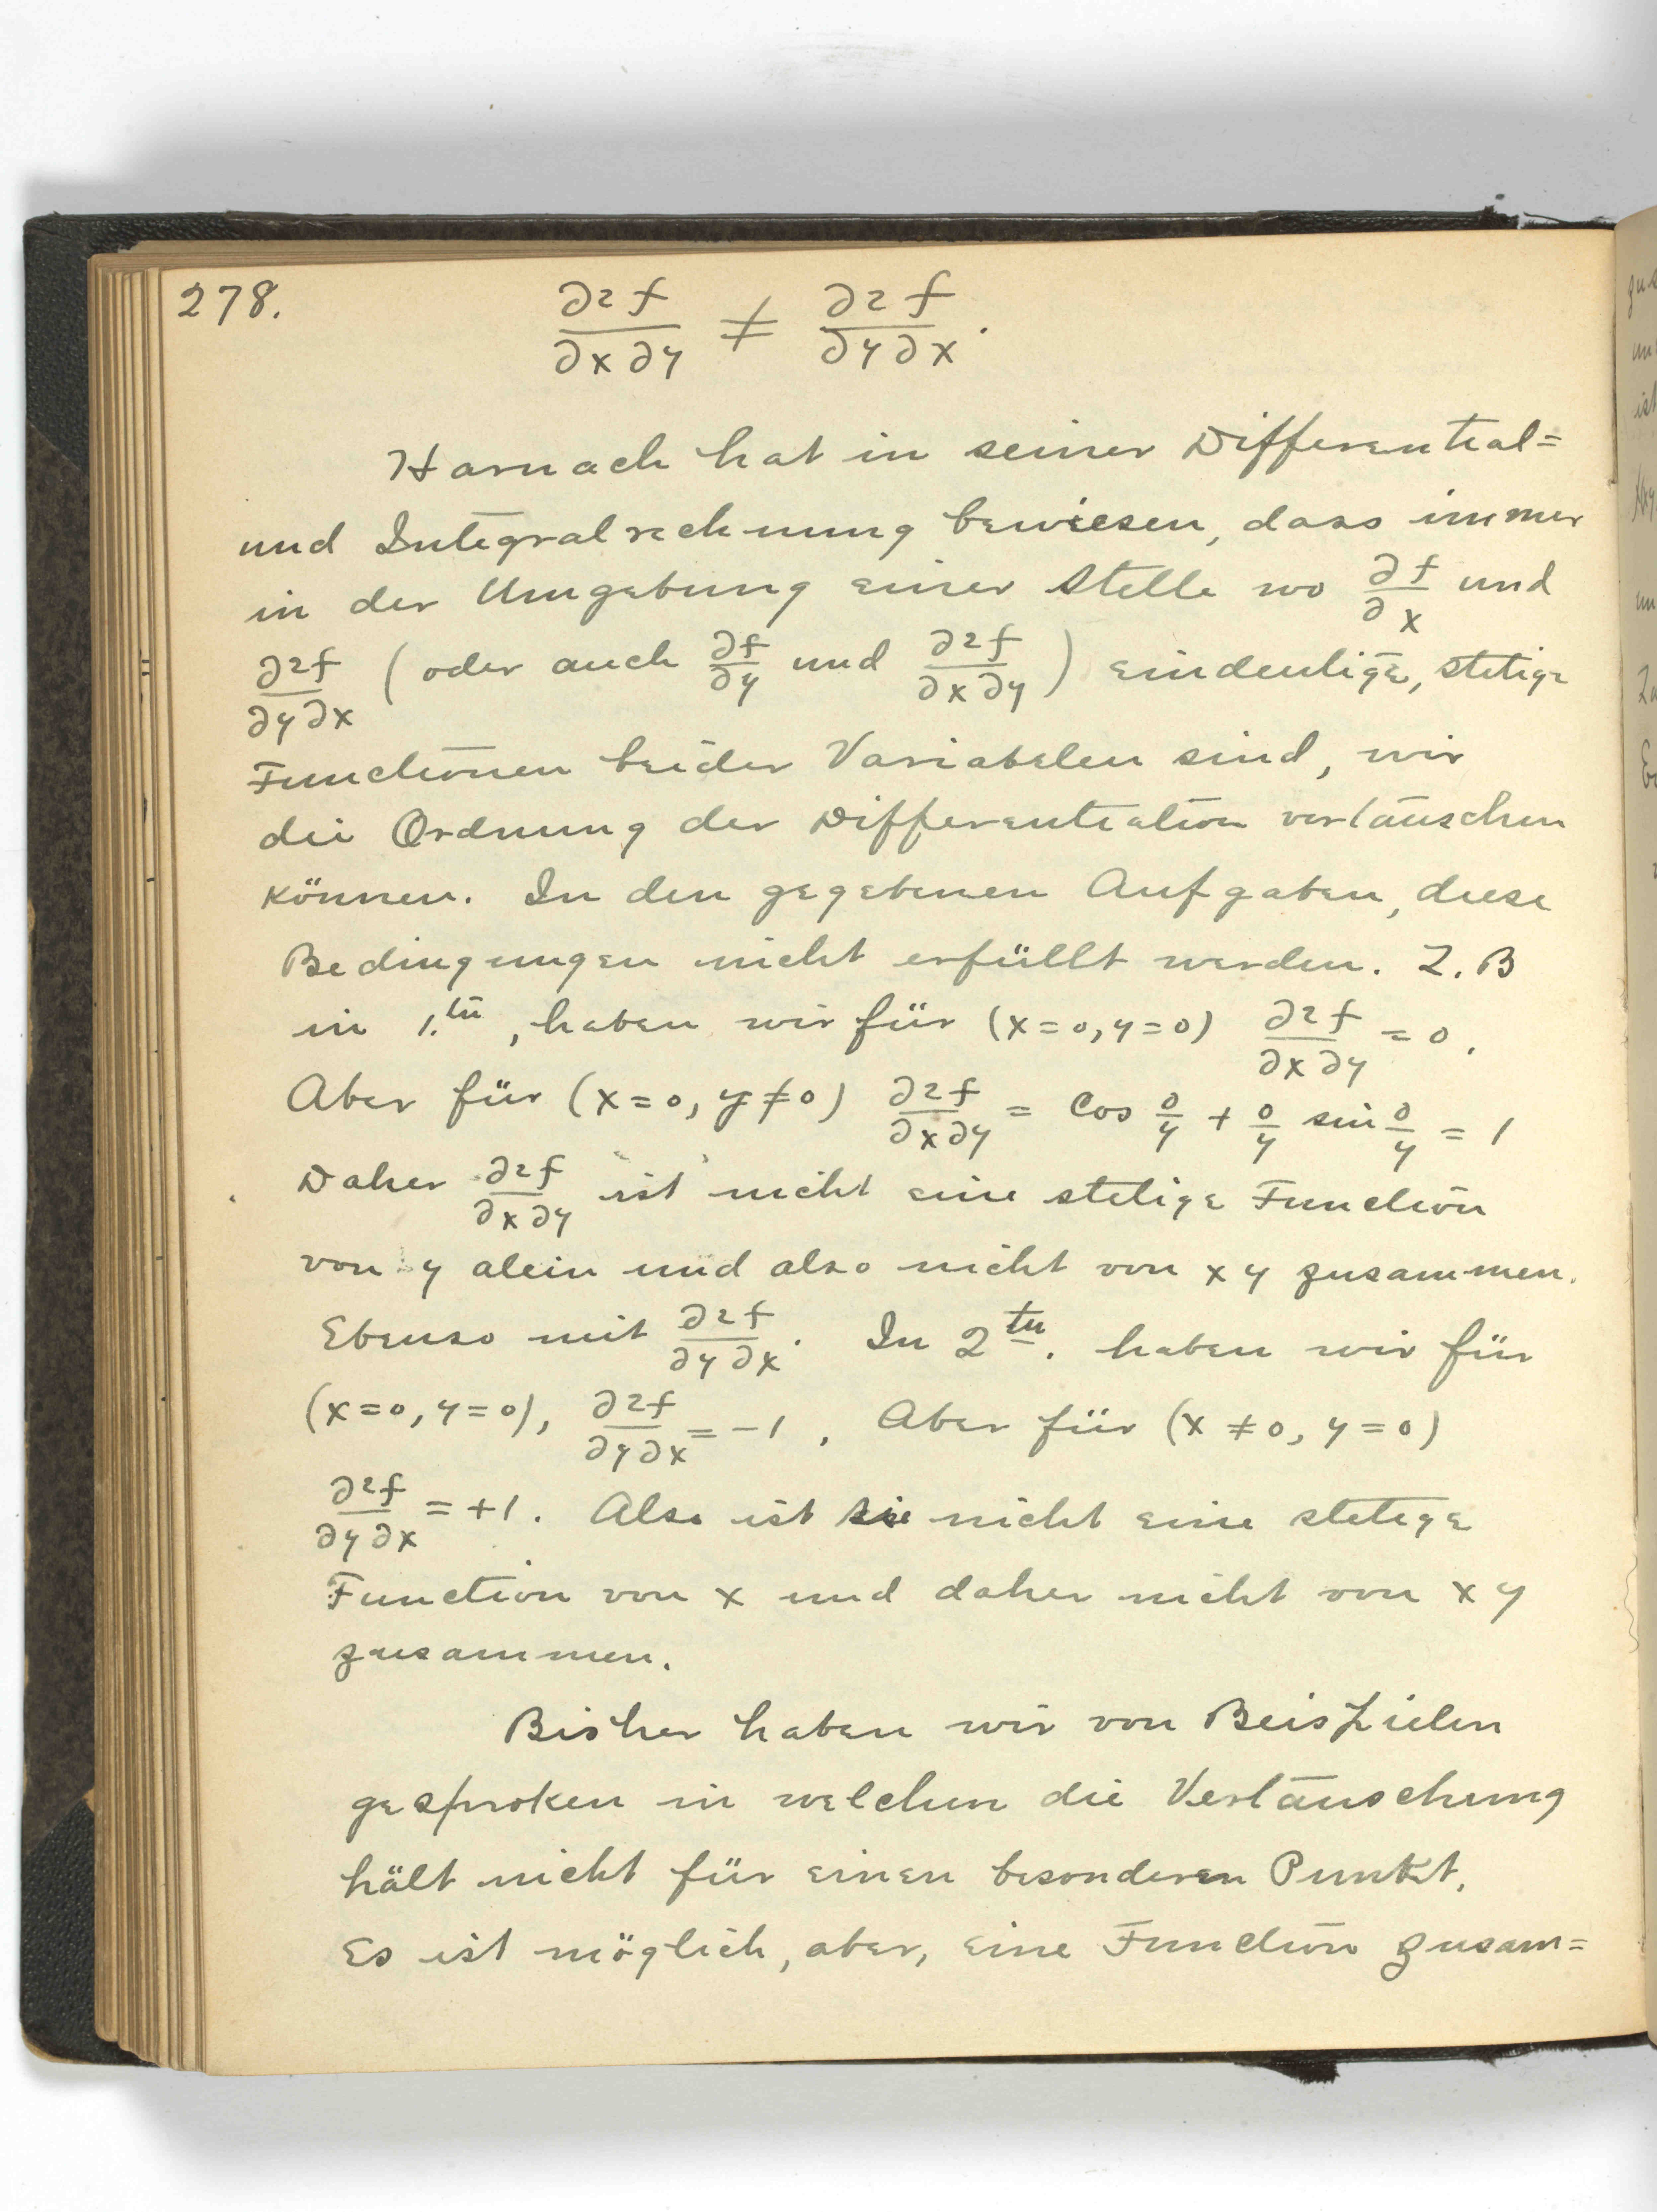 278. ∂²f/∂x∂y ≠ ∂²f/∂y∂x.
Harnach hat in seiner Differential=
und Integralrechnung bewiesen, dass immer
in der Umgebung einer Stelle wo ∂f/∂x und
∂²f/∂y∂x (oder auch ∂f/∂y und ∂²f/∂x∂y) eindeutige, stetige
Functionen beider Variabelen sind, wir
die Ordnung der Differentiation vertäuschen
können. In den gegebenen Aufgaben, diese
Bedingungen nicht erfüllt werden. Z. B
in 1.ten, haben wir für (x=0, y=0) ∂²f/∂x∂y = 0.
Aber für (x=0, y≠0) ∂²f/∂x∂y = Cos 0/y + 0/y sin 0/y = 1
Daher ∂²f/∂x∂y ist nicht eine stetige Function
von y alein und also nicht von x y zusammen.
Ebenso mit ∂²f/∂y∂x. In 2ten. haben wir für
(x=0, y=0), ∂²f/∂y∂x = -1. Aber für (x≠0, y=0)
∂²f/∂y∂x = +1. Also ist sie nicht eine stetege
Function von x und daher nicht von x y
zusammen.
Bisher haben wir von Beispielen
gesproken in welchen die Vertäuschung
hält nicht für einen besonderen Punkt.
Es ist möglich, aber, eine Function zusam=